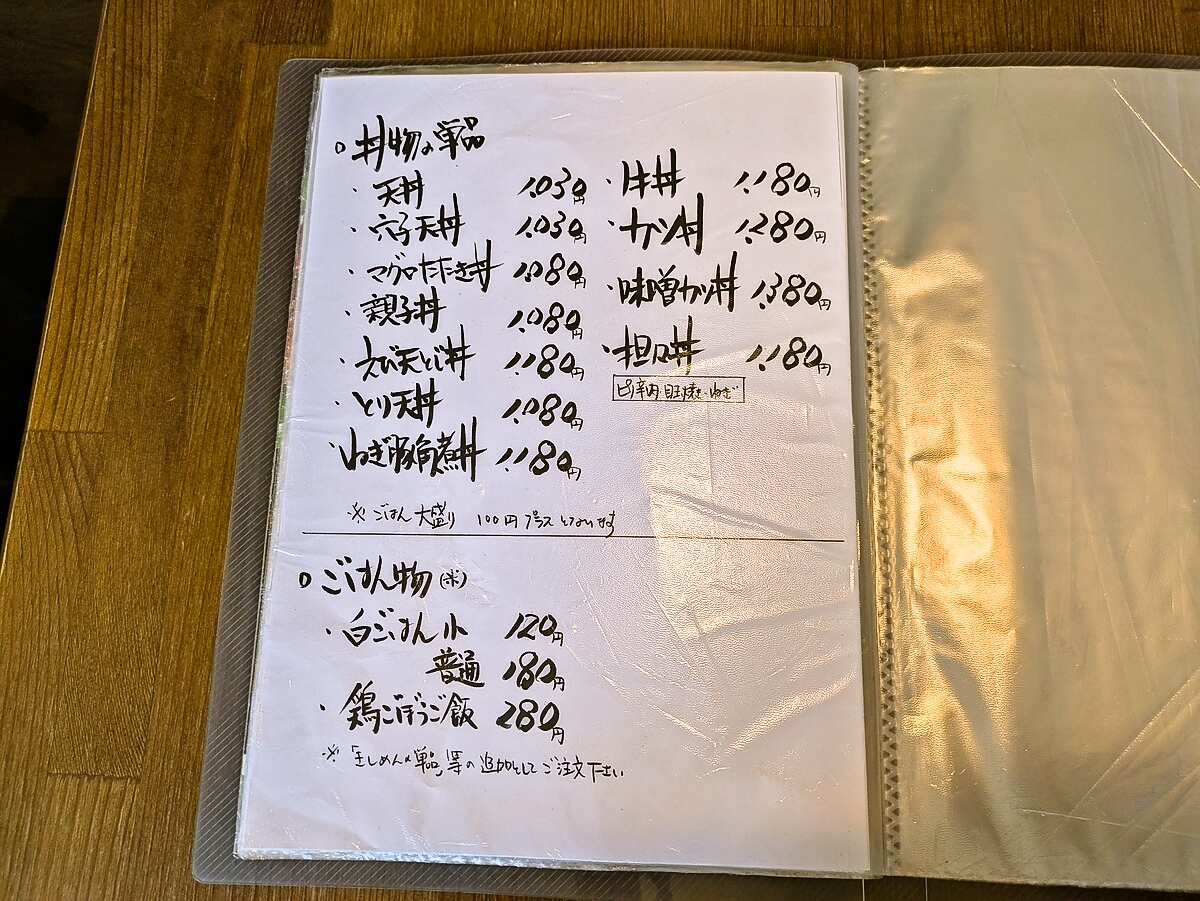 ○丼物の単品
・天丼 1,030円
・穴子天丼 1,030円
・マグロたたき丼 1,080円
・親子丼 1,080円
・えび天とじ丼 1,180円
・とり天丼 1,080円
・ねぎ豚角煮丼 1,180円
・牛丼 1,180円
・カツ丼 1,280円
・味噌カツ丼 1,380円
・担々丼 1,180円
ピリ辛肉・目玉焼き・ねぎ
※ごはん大盛り 100円プラスとなります
○ごはん物(米)
・白ごはん小 120円
普通 180円
・鶏ごぼうご飯 280円
※「きしめんの単品」等の追加としてご注文下さい